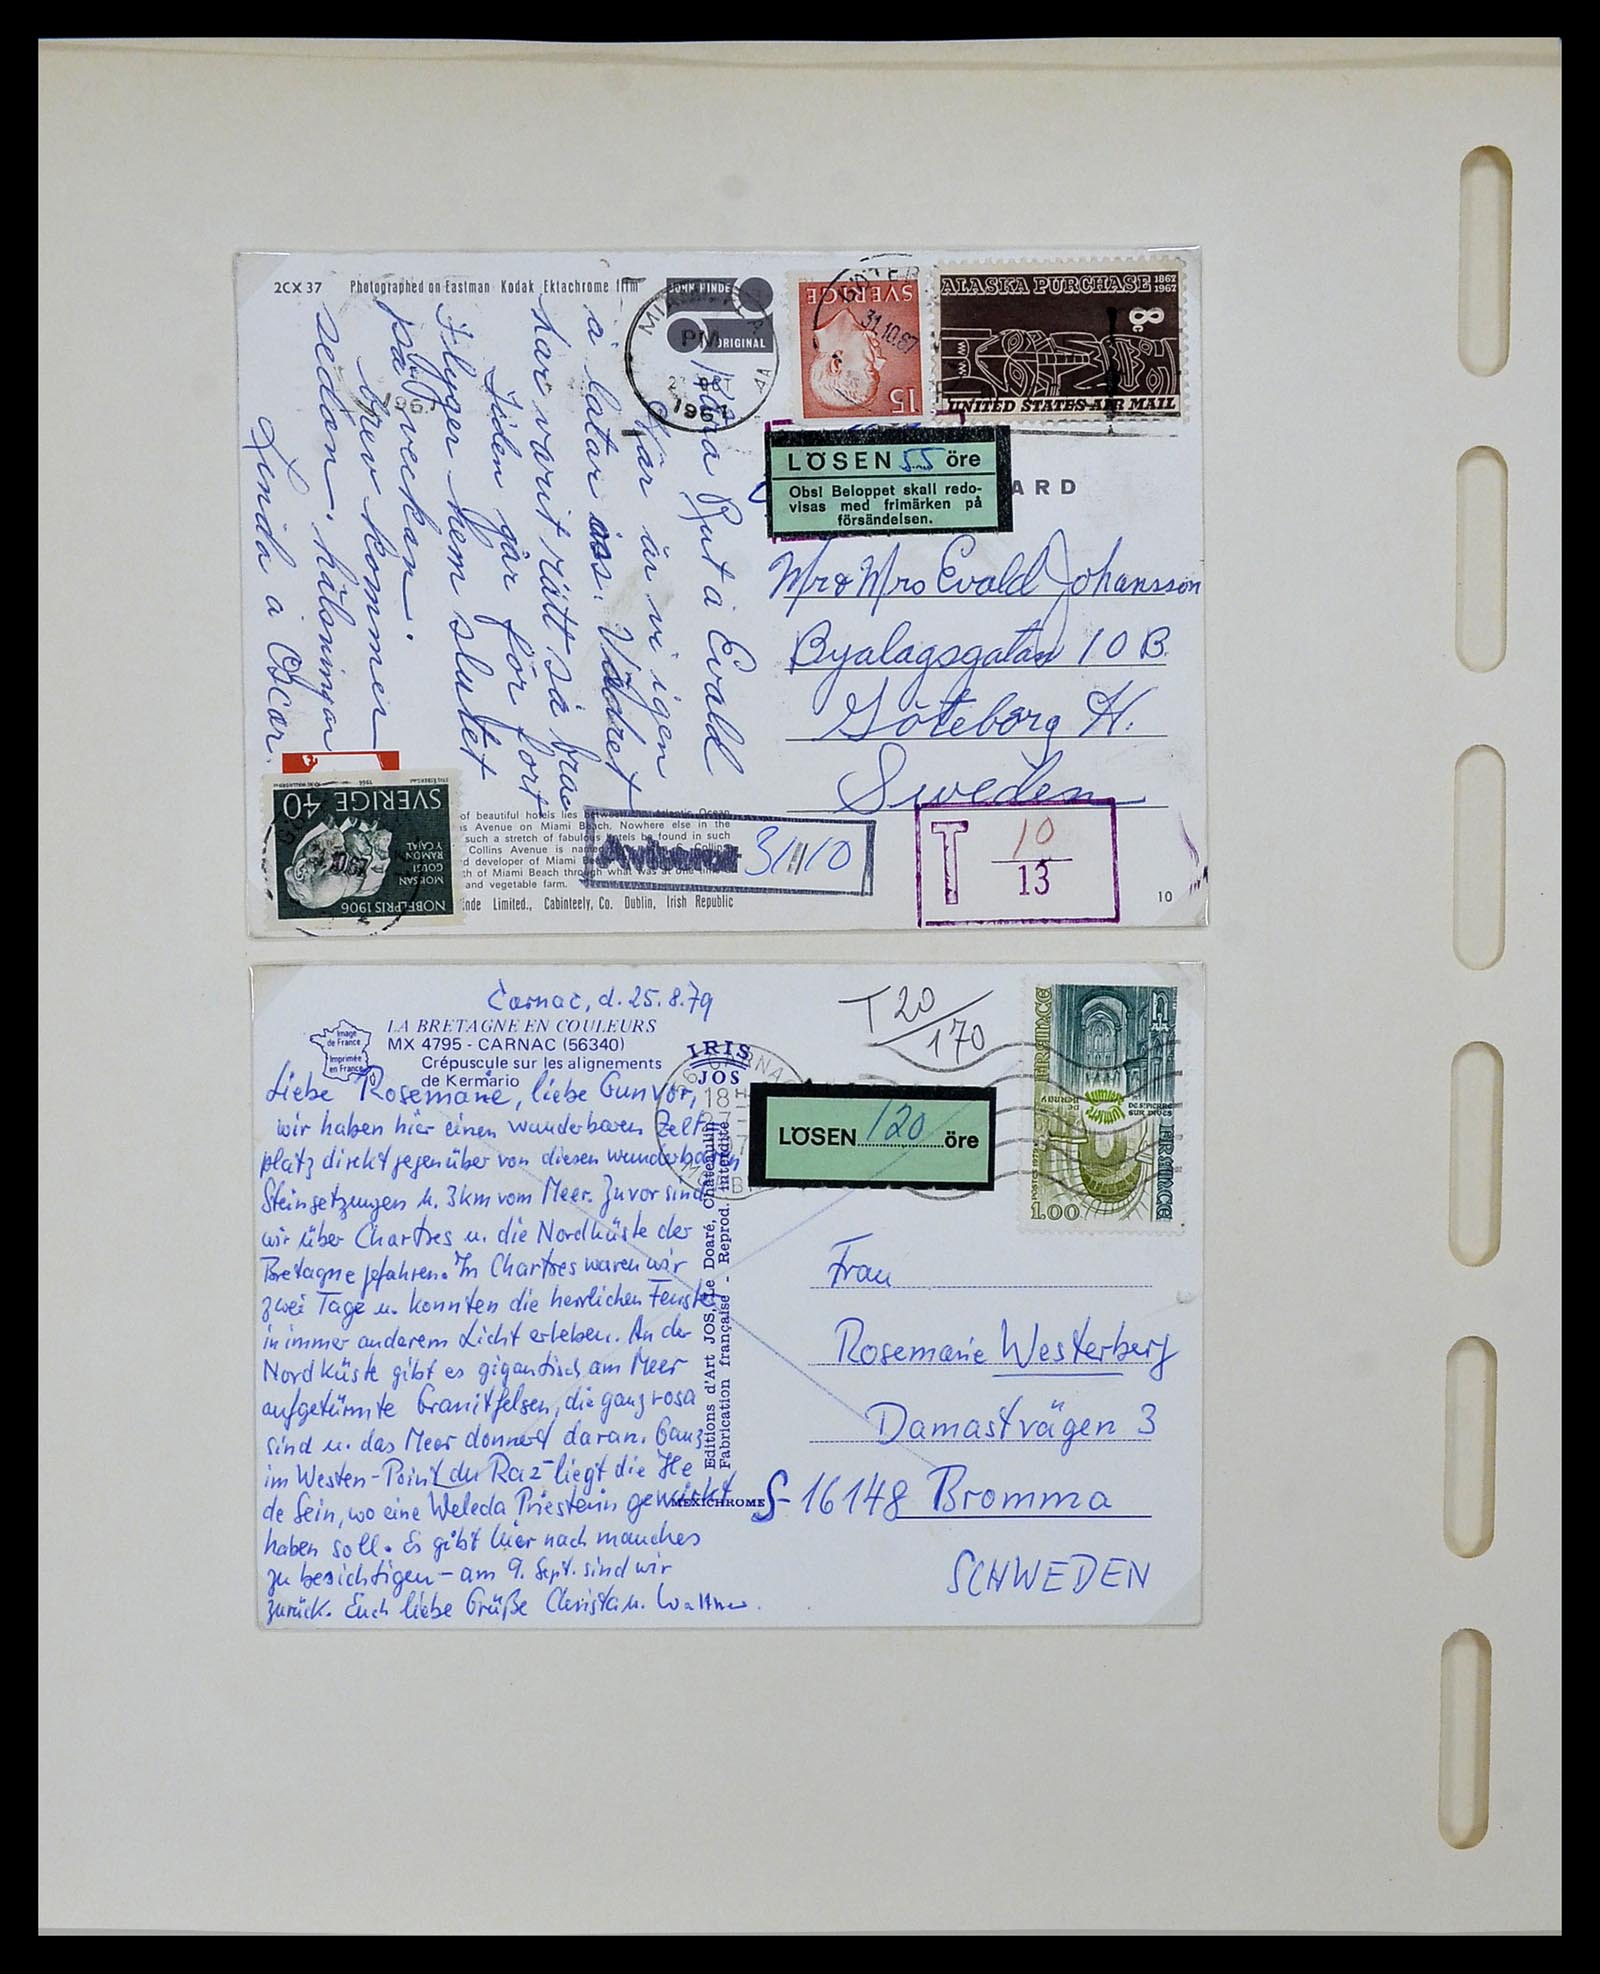 2CX 37 Photographed on Eastman Kodak Ektachrome film
JOHN HINDE
ORIGINAL
MIAMI
PM
1967
SVERIGE
15
31.10.67
ALASKA PURCHASE 1867 1967
8c
UNITED STATES AIR MAIL
LÖSEN 55 öre
Obs! Beloppet skall redo-
visas med frimärken på
försändelsen.
ARD
Kära Rut å Evald
Här är vi igen
å latar oss. Vädret
har varit rätt så bra
Tiden går för fort
Flyger hem slutet
på veckan.
brev kommer
sedan. hälsningar
Linda å Oscar.
Mr & Mrs Evald Johansson
Byalagsgatan 10 B.
Göteborg H.
Sweden
SVERIGE 40
MOISSAN
GOLGI
RAMON
Y CAJAL
NOBELPRIS 1906
of beautiful hotels lies between the Atlantic Ocean
Avenue on Miami Beach. Nowhere else in the
such a stretch of fabulous hotels be found in such
Collins Avenue is named
d developer of Miami
th of Miami Beach through what was at one time
and vegetable farm.
inde Limited., Cabinteely, Co. Dublin, Irish Republic
31/10
T 10
13
10
Carnac, d. 25.8.79
Image
de France
Imprimée
en France
LA BRETAGNE EN COULEURS
MX 4795 - CARNAC (56340)
Crépuscule sur les alignements
de Kermario
IRIS
JOS
18H
T 20
170
LÖSEN 120 öre
FRANCE
DE BERNAY
DE ST PIERRE
SUR DIVES
FRANCE
1.00
Liebe Rosemarie, liebe Gunvor,
wir haben hier einen wunderbaren Zelt-
platz direkt gegenüber von diesen wunderbaren
Steinsetzungen u. 3km vom Meer. Zuvor sind
wir über Chartres u. die Nordküste der
Bretagne gefahren. In Chartres waren wir
zwei Tage u. konnten die herrlichen Fenster
in immer anderem Licht erleben. An der
Nordküste gibt es gigantisch am Meer
aufgetürmte Granitfelsen, die ganz rosa
sind u. das Meer donnert daran. Ganz
im Westen - Point du Raz - liegt die Ile
de Sein, wo eine Weleda Priesterin gewirkt
haben soll. Es gibt hier noch manches
zu besichtigen - am 9. Sept. sind wir
zurück. Euch liebe Grüße Christa u.
Editions d'Art JOS, Le Doaré, Châteaulin
Fabrication française - Reprod. interdite
MEXICHROME
Frau
Rosemarie Westerberg
Damastvägen 3
S-16148 Bromma
SCHWEDEN